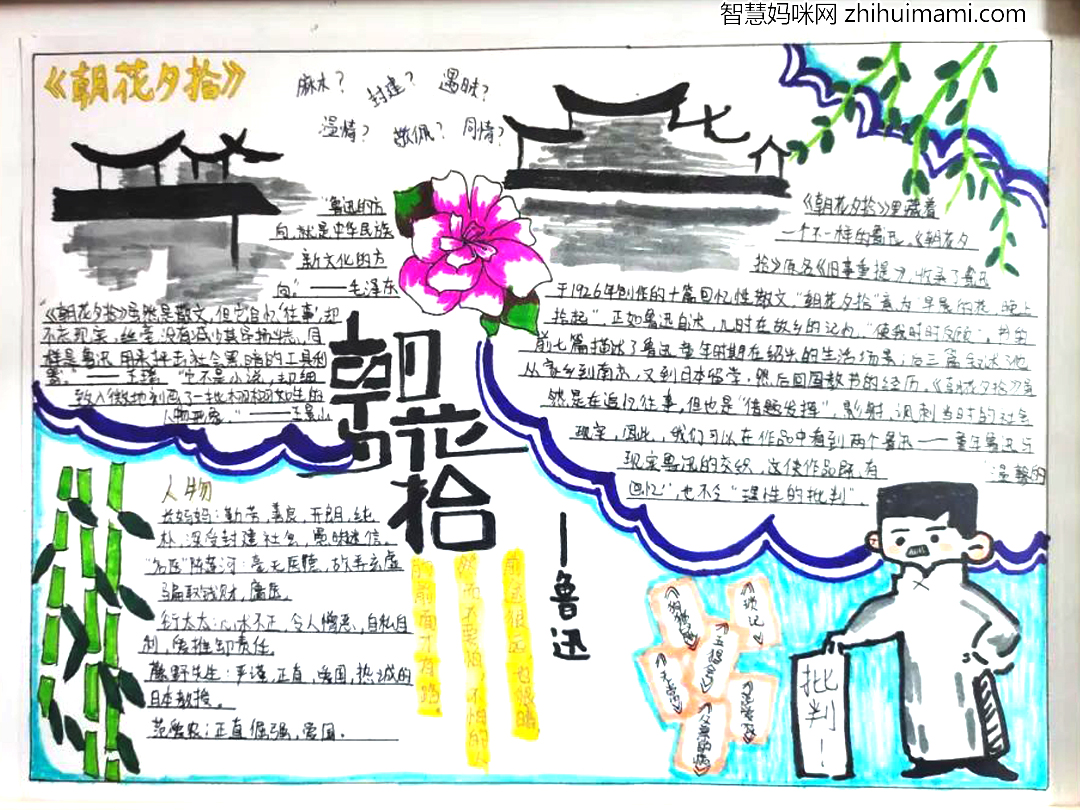 智慧妈咪网 zhihuimami.com
《朝花夕拾》
麻木？ 封建？ 愚昧？
温情？ 敬佩？ 同情？
"鲁迅的方
向，就是中华民族
新文化的方
向"——毛泽东
《朝花夕拾》虽然是散文，但它自忆'往事'，却
不忘现实，丝毫没有减少其导扬斗志，同
样是鲁迅用来抨击社会黑暗的工具利
器。"——王瑶 "它不是小说，却细
致入微地刻画了一批栩栩如生的
人物形象。"——王景山
朝花夕拾
——鲁迅
《朝花夕拾》里藏着
一个不一样的鲁迅，《朝花夕
拾》原名《旧事重提》，收录了鲁迅
于1926年创作的十篇回忆性散文，"朝花夕拾"意为"早晨的花，晚上
拾起"，正如鲁迅自述，儿时在故乡的记忆，"使我时时反顾"，书的
前七篇描述了鲁迅童年时期在绍兴的生活场景；后三篇叙述了他
从家乡到南京，又到日本留学，然后回国教书的经历，《朝花夕拾》虽
然是在追忆往事，但也是"借题发挥"，影射、讽刺当时的社会
现实，因此，我们可以在作品中看到两个鲁迅——童年鲁迅与
现实鲁迅的交织，这使作品既有"温馨的
回忆"，也不乏"理性的批判"
人物
长妈妈：勤劳，善良，开朗，纯
朴，深信封建社会，愚昧迷信。
"名医"陈莲河：毫无医德，故弄玄虚
骗取钱财，庸医。
衍太太：心术不正，令人憎恶，自私自
利，爱推卸责任
藤野先生：严谨，正直，爱国，热诚的
日本教授。
范爱农：正直倔强，爱国。
前途很远，也很暗
然而不要怕，不怕的
人的前面才有路
《狗猫鼠》
《琐记》
《五猖会》
《无常》
《父亲的病》
批判！